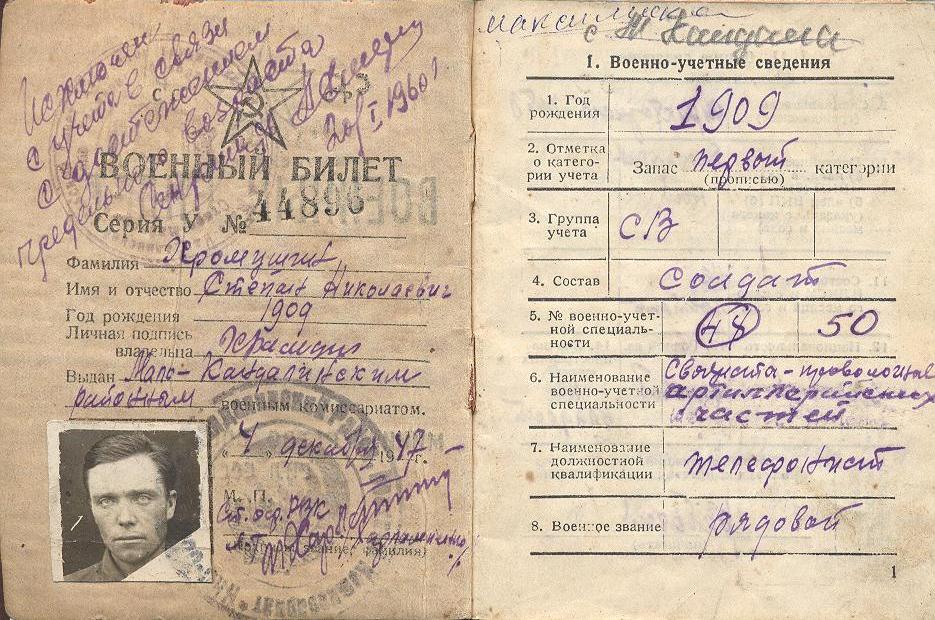 Исключен
с учета в связи
с достижением
предельного возраста
20/I 1960г
ВОЕННЫЙ БИЛЕТ
Серия У № 44896
Фамилия Хромушин
Имя и отчество Степан Николаевич
Год рождения 1909
Личная подпись
владельца
Выдан Мало-Кандалинским
районным военным комиссариатом.
"4" декабря 1947г.
М. П.
с. М Кандала
1. Военно-учетные сведения
1. Год
рождения 1909
2. Отметка
о катего-
рии учета Запас первый категории
(прописью)
3. Группа
учета СВ
4. Состав солдат
5. № военно-учет-
ной специаль-
ности 48 50
6. Наименование
военно-учетной
специальности Связиста-проводника
артиллерийских
частей
7. Наименование
должностной
квалификации телефонист
8. Военное звание рядовой
1